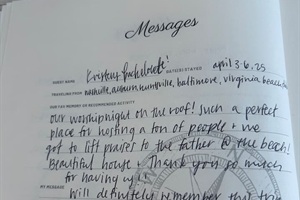 Messages
GUEST NAME Kristens bachelorette! DATE(S) STAYED april 3-6, 25
TRAVELING FROM nashville, auburn, huntsville, baltimore, virginia beach
OUR FAV MEMORY OR RECOMMENDED ACTIVITY
our worship night on the roof! such a perfect
place for hosting a ton of people + we
got to lift praises to the father @ the beach!
Beautiful house + Thank you so much
for having us!!
MY MESSAGE
will definitely remember this trip